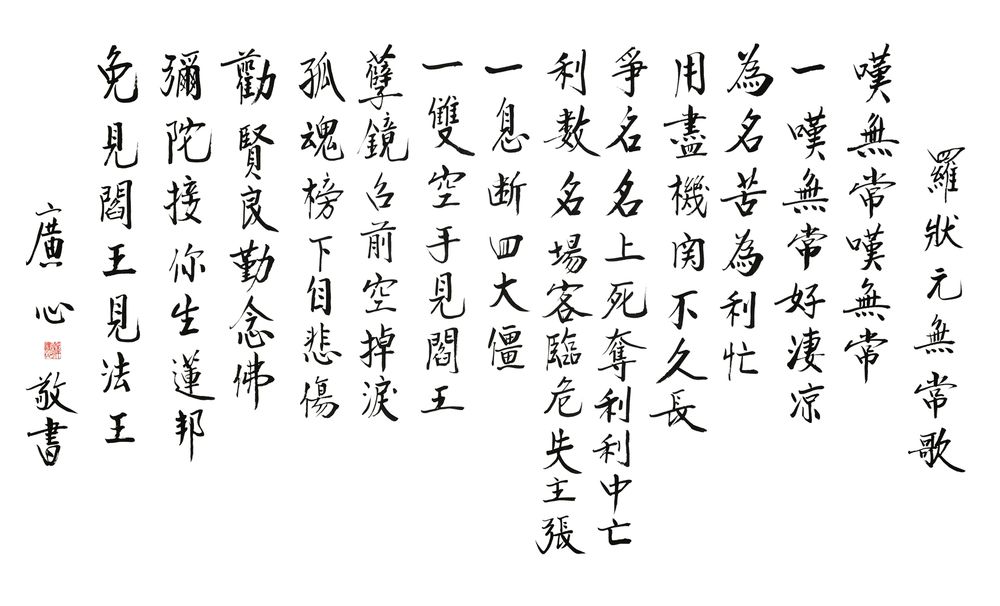 羅狀元無常歌
嘆無常嘆無常
一嘆無常好淒凉
為名苦為利忙
用盡機関不久長
爭名名上死奪利利中亡
利数名場客臨危失主張
一息断四大僵
一雙空手見閻王
孽鏡台前空掉淚
孤魂榜下自悲傷
勸賢良勤念佛
彌陀接你生蓮邦
免見閻王見法王
廣心敬書